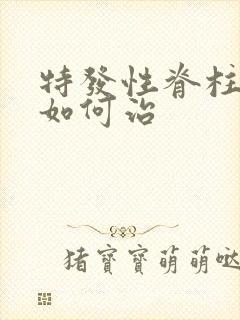 特發性脊柱
如何治
猪寶寶萌萌噠